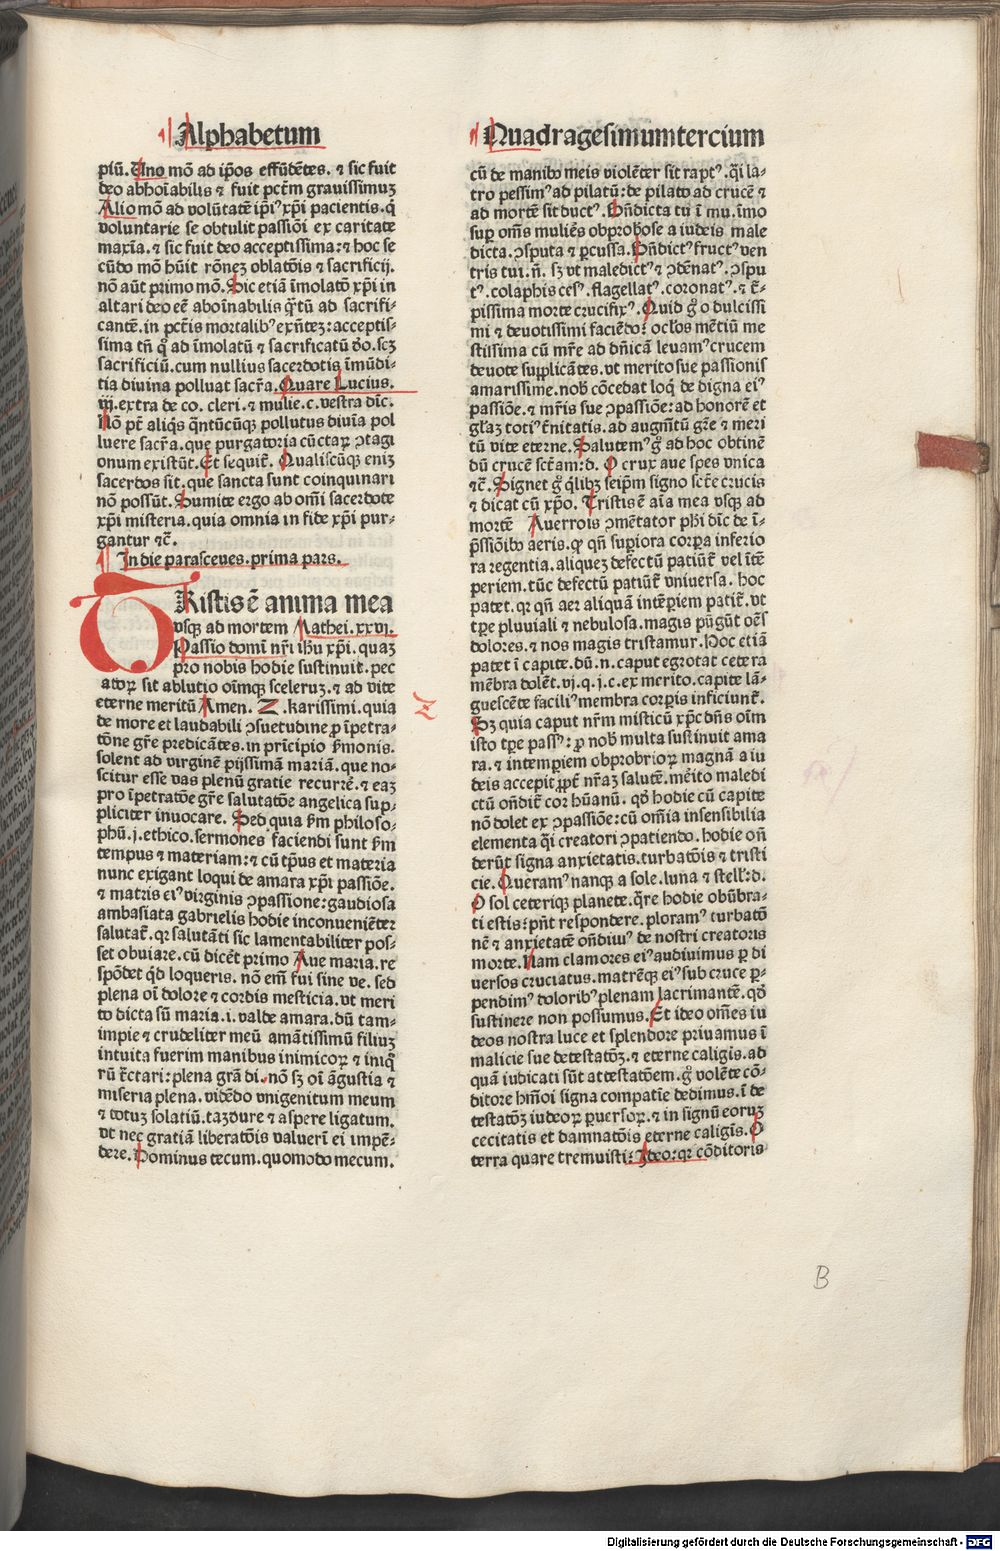 Alphabetum
plū. Uno mō ad ip̄os effūdētes. ⁊ sic fuit
deo abhoı̄abilis ⁊ fuit pctm̄ grauissimuꝫ
Alio mō ad volūtatē ip̄i⁹ xp̄i pacientis. q̄
voluntarie se obtulit passiōi ex caritate
maxīa. ⁊ sic fuit deo acceptissima: ⁊ hoc se
cūdo mō hūit rōneꝫ oblatōis ⁊ sacrificij.
nō aūt primo mō. Sic etiā īmolatō xp̄i in
altari deo eē aboı̄nabilis q̄tū ad sacrifi-
cantē. in pctīs mortalibꝰ exn̄teꝫ: acceptis-
sima tn̄ ꝙ ad īmolatū ⁊ sacrificatū ꝟo. scꝫ
sacrificiū. cum nullius sacerdotis īmūdi-
tia diuina polluat sacr̄a. Quare Lucius.
iij. extra de co. cleri. ⁊ mulie. c. vestra dīc.
Nō pt̄ aliq̄s q̄ntūcūqꝫ pollutus diuīa pol
luere sacr̄a. que purgatoria cūctaꝝ ꝯtagi
onum existūt. Et sequit̄. Qualiscūqꝫ eniꝫ
sacerdos sit. que sancta sunt coinquinari
nō possūt. Sumite ergo ab om̄i sacerdote
xp̄i misteria. quia omnia in fide xp̄i pur-
gantur ⁊c̄.
In die parasceues. prima pars.
Tristis ē anima mea
vsqꝫ ad mortem Mathei. xxvi.
Passio domī nr̄i ih̄u xp̄i. quaꝫ
pro nobis hodie sustinuit. pec
atoꝝ sit ablutio oīmqꝫ sceleruꝫ. ⁊ ad vite
eterne meritū Amen. Z. karissimi. quia
Z
de more et laudabili ꝯsuetudine ꝓ īpetra-
tōne gr̄e predicātes. in prīcipio ẜmonis.
solent ad virginē pijssimā mariā. que no-
scitur esse vas plenū gratie recurrē. ⁊ eaꝫ
pro īpetratōe gr̄e salutatōe angelica sup-
pliciter inuocare. Sed quia ẜm philoso-
phū. j. ethico. sermones faciendi sunt ẜm
tempus ⁊ materiam: ⁊ cū tp̄us et materia
nunc exigant loqui de amara xp̄i passiōe.
⁊ matris ei⁹ virginis ꝯpassione: gaudiosa
ambasiata gabrielis hodie inconueniēter
salutat̄. qꝛ salutāti sic lamentabiliter pos-
set obuiare. cū dicēt primo Aue maria. re
spōdet q̄d loqueris. nō em̄ fui sine ve. sed
plena oı̄ dolore ⁊ cordis mesticia. vt meri
to dicta sū maria. i. valde amara. dū tam-
impie ⁊ crudeliter meū amātissimū filiuꝫ
intuita fuerim manibus inimicoꝝ ⁊ iniq̄
rū t̄ctari: plena grā di. nō sꝫ oı̄ āgustia ⁊
miseria plena. vidēdo vnigenitum meum
⁊ totuꝫ solatiū. taꝫ dure ⁊ aspere ligatum.
vt nec gratiā liberatōis valuerī ei impē-
dere. Dominus tecum. quomodo mecum.
Quadragesimumtercium
cū de manibꝰ meis violēter sit rapt⁹. q̄i la-
tro pessim⁹ ad pilatū: de pilato ad crucē ⁊
ad mortē sit duct⁹. Bn̄dicta tu ī mu. īmo
suꝑ om̄s muliēs obprobose a iudeis male
dicta. ꝯsputa ⁊ ꝑcussa. Bn̄dict⁹ fruct⁹ ven
tris tui. n̄. sꝫ vt maledict⁹ ⁊ ꝯdēnat⁹. ꝯspu
t⁹. colaphis ces⁹. flagellat⁹. coronat⁹. ⁊ t̄-
pissima morte crucifix⁹. Quid g̊ o dulcissi
mi ⁊ deuotissimi faciēdo: oclōs mētiū me
stissima cū mr̄e ad dn̄icā leuam⁹ crucem
deuote supplicātes. vt merito sue passionis
amarissime. nob̄ cōcedat loq̄ de digna ei⁹
passiōe. ⁊ mr̄is sue ꝯpassiōe: ad honorē et
gl̄aꝫ toti⁹ t̄nitatis. ad augm̄tū gr̄e ⁊ meri
tū vite eterne. Salutem⁹ g̊ ad hoc obtinē
dū crucē sct̄am: d. O crux aue spes vnica
⁊c̄. Signet g̊ q̄libꝫ seip̄m signo sct̄e crucis
⁊ dicat cū xp̄o. Tristis ē aīa mea vsqꝫ ad
mortē Auerrois ꝯmētator ph̄i dīc de ī-
p̄ssiōibꝰ aeris. ꝙ qn̄ suꝑiora corꝑa inferio
ra regentia. aliqueꝫ defectū patiūt̄ vel ītē
periem. tūc defectū patiūt̄ vniuersa. hoc
patet. qꝛ qn̄ aer aliquā intēꝑiem patit̄. vt
tꝑe pluuiali ⁊ nebulosa. magis pūgūt oēs
dolores. ⁊ nos magis tristamur. Hoc etiā
patet ī capite. dū. n. caput egrotat cetera
mēbra dolēt. vj. q. j. c. ex merito. capite lā-
guescēte facili⁹ membra corꝑis inficiunt̄.
Sꝫ quia caput nr̄m misticū xp̄c dn̄s oīm
isto tꝑe pass⁹: ꝓ nob̄ multa sustinuit ama
ra. ⁊ intemꝑiem obprobrioꝝ magnā a iu
deis accepit ꝓpt̄ nr̄aꝫ salutē. mēito maledi
ctū on̄dit̄ cor hūanū. qꝺ̄ hodie cū capite
nō dolet ex ꝯpassiōe: cū om̄ia insensibilia
elementa q̄i creatori ꝯpatiendo. hodie on̄
derūt signa anxietatis. turbatōis ⁊ tristi
cie. Queram⁹ nanqꝫ a sole. luna ⁊ stell̄: d.
O sol ceteriqꝫ planete. q̄re hodie obūbra-
ti estis: pn̄t respondere. ploram⁹ turbatō
nē ⁊ anxietatē on̄diu⁹ de nostri creatoris
morte. Nam clamores ei⁹ audiuimus ꝑ di
uersos cruciatus. matrēqꝫ ei⁹ sub cruce ꝑ-
pendim⁹ doloribꝰ plenam lacrimantē. qꝺ̄
sustinere non possumus. Et ideo om̄es iu
deos nostra luce et splendore priuamus ī
malicie sue detestatōꝫ. ⁊ eterne caligīs. ad
quā iudicati sūt attestatōem. g̊ volēte cō-
ditore hm̄oi signa compatīe dedimus. ī de
testatōꝫ iudeoꝝ ꝑuersoꝝ. ⁊ in signū eoruꝫ
cecitatis et damnatōis eterne caligīs. O
terra quare tremuisti: Ideo: qꝛ cōditoris
B
Digitalisierung gefördert durch die Deutsche Forschungsgemeinschaft - DFG